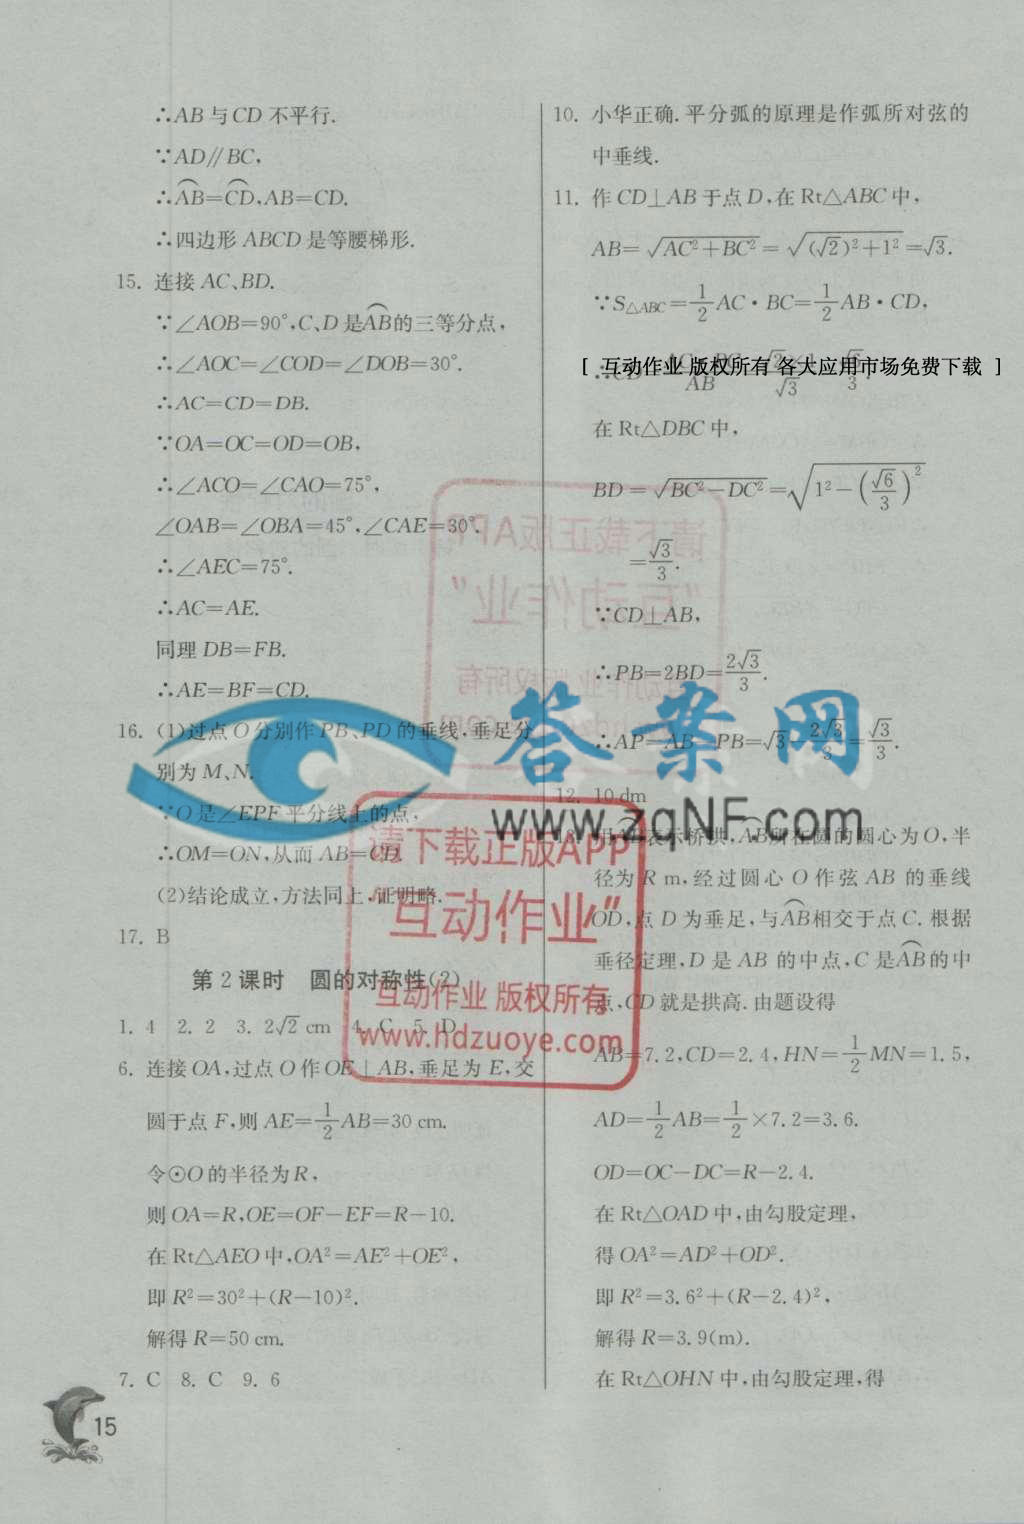 ∴AB与CD不平行.
∵AD∥BC,
∴AB=CD,AB=CD.
∴四边形ABCD是等腰梯形.
15. 连接AC、BD.
∵∠AOB=90°,C、D是AB的三等分点,
∴∠AOC=∠COD=∠DOB=30°.
∴AC=CD=DB.
∵OA=OC=OD=OB,
∴∠ACO=∠CAO=75°,
∠OAB=∠OBA=45°,∠CAE=30°.
∴∠AEC=75°.
∴AC=AE.
同理DB=FB.
∴AE=BF=CD.
16. (1)过点O分别作PB、PD的垂线,垂足分
别为M、N.
∵O是∠EPF平分线上的点,
∴OM=ON,从而AB=CD.
(2)结论成立,方法同上,证明略.
17. B
第2课时 圆的对称性(2)
1. 4 2. 2 3. 2√2 cm 4. C 5. D
6. 连接OA,过点O作OE⊥AB,垂足为E,交
圆于点F,则AE=1/2AB=30 cm.
令⊙O的半径为R,
则OA=R,OE=OF-EF=R-10.
在Rt△AEO中,OA²=AE²+OE²,
即R²=30²+(R-10)².
解得R=50 cm.
7. C 8. C 9. 6
15
10. 小华正确.平分弧的原理是作弧所对弦的
中垂线.
11. 作CD⊥AB于点D,在Rt△ABC中,
AB=√(AC²+BC²)=√((√2)²+1²)=√3.
∵S△ABC=1/2AC·BC=1/2AB·CD,
[ 互动作业 版权所有 各大应用市场免费下载 ]
在Rt△DBC中,
BD=√(BC²-DC²)=√(1²-(√6/3)²)
=√3/3.
∵CD⊥AB,
∴PB=2BD=2√3/3.
∴AP=AB-PB=√3-2√3/3=√3/3.
12. 10 dm
表示桥拱,AB所在圆的圆心为O,半
径为R m,经过圆心O作弦AB的垂线
OD,点D为垂足,与AB相交于点C.根据
垂径定理,D是AB的中点,C是AB的中
点,CD就是拱高.由题设得
AB=7.2,CD=2.4,HN=1/2MN=1.5,
AD=1/2AB=1/2×7.2=3.6.
OD=OC-DC=R-2.4.
在Rt△OAD中,由勾股定理,
得OA²=AD²+OD².
即R²=3.6²+(R-2.4)²,
解得R=3.9(m).
在Rt△OHN中,由勾股定理,得
答案网
www.zqNF.com
请下载正版APP
"互动作业"
互动作业 版权所有
www.hdzuoye.com